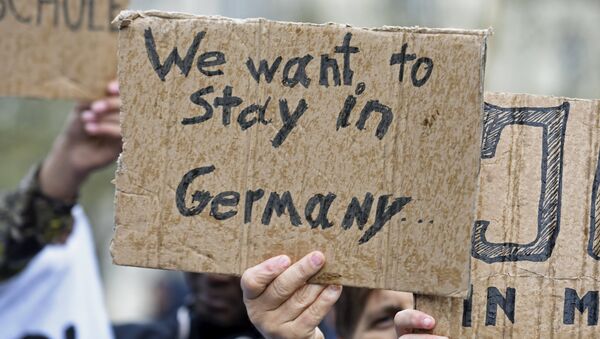 SCHULE
We want to
Stay in
Germany...
IN M